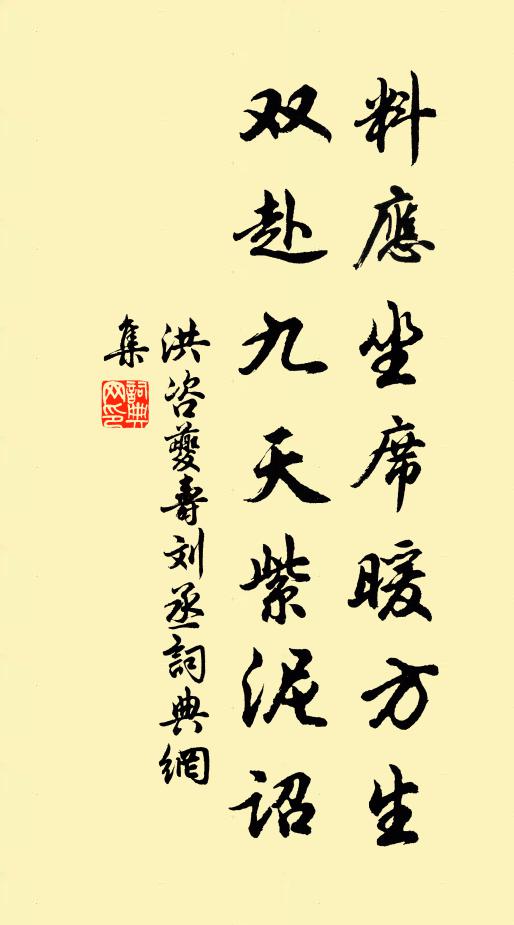 料應坐席暖方生
双赴九天紫泥詔
洪咨夔壽刘丞詞典網
集
詞典
网印